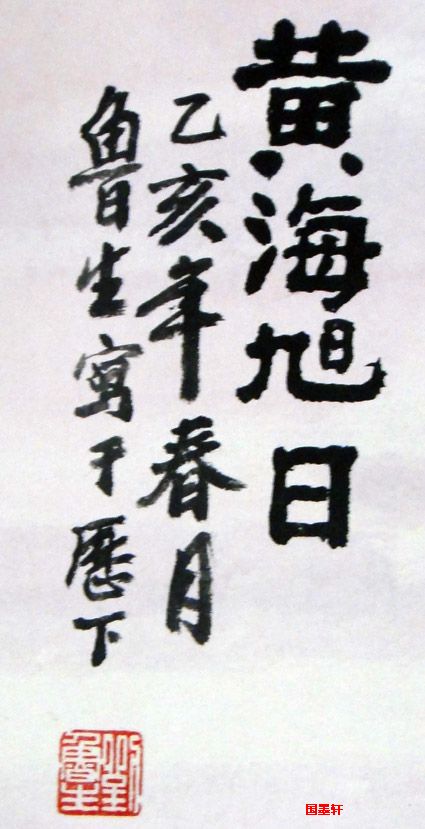 黄海旭日
乙亥年春月
鲁生写于历下
国墨轩